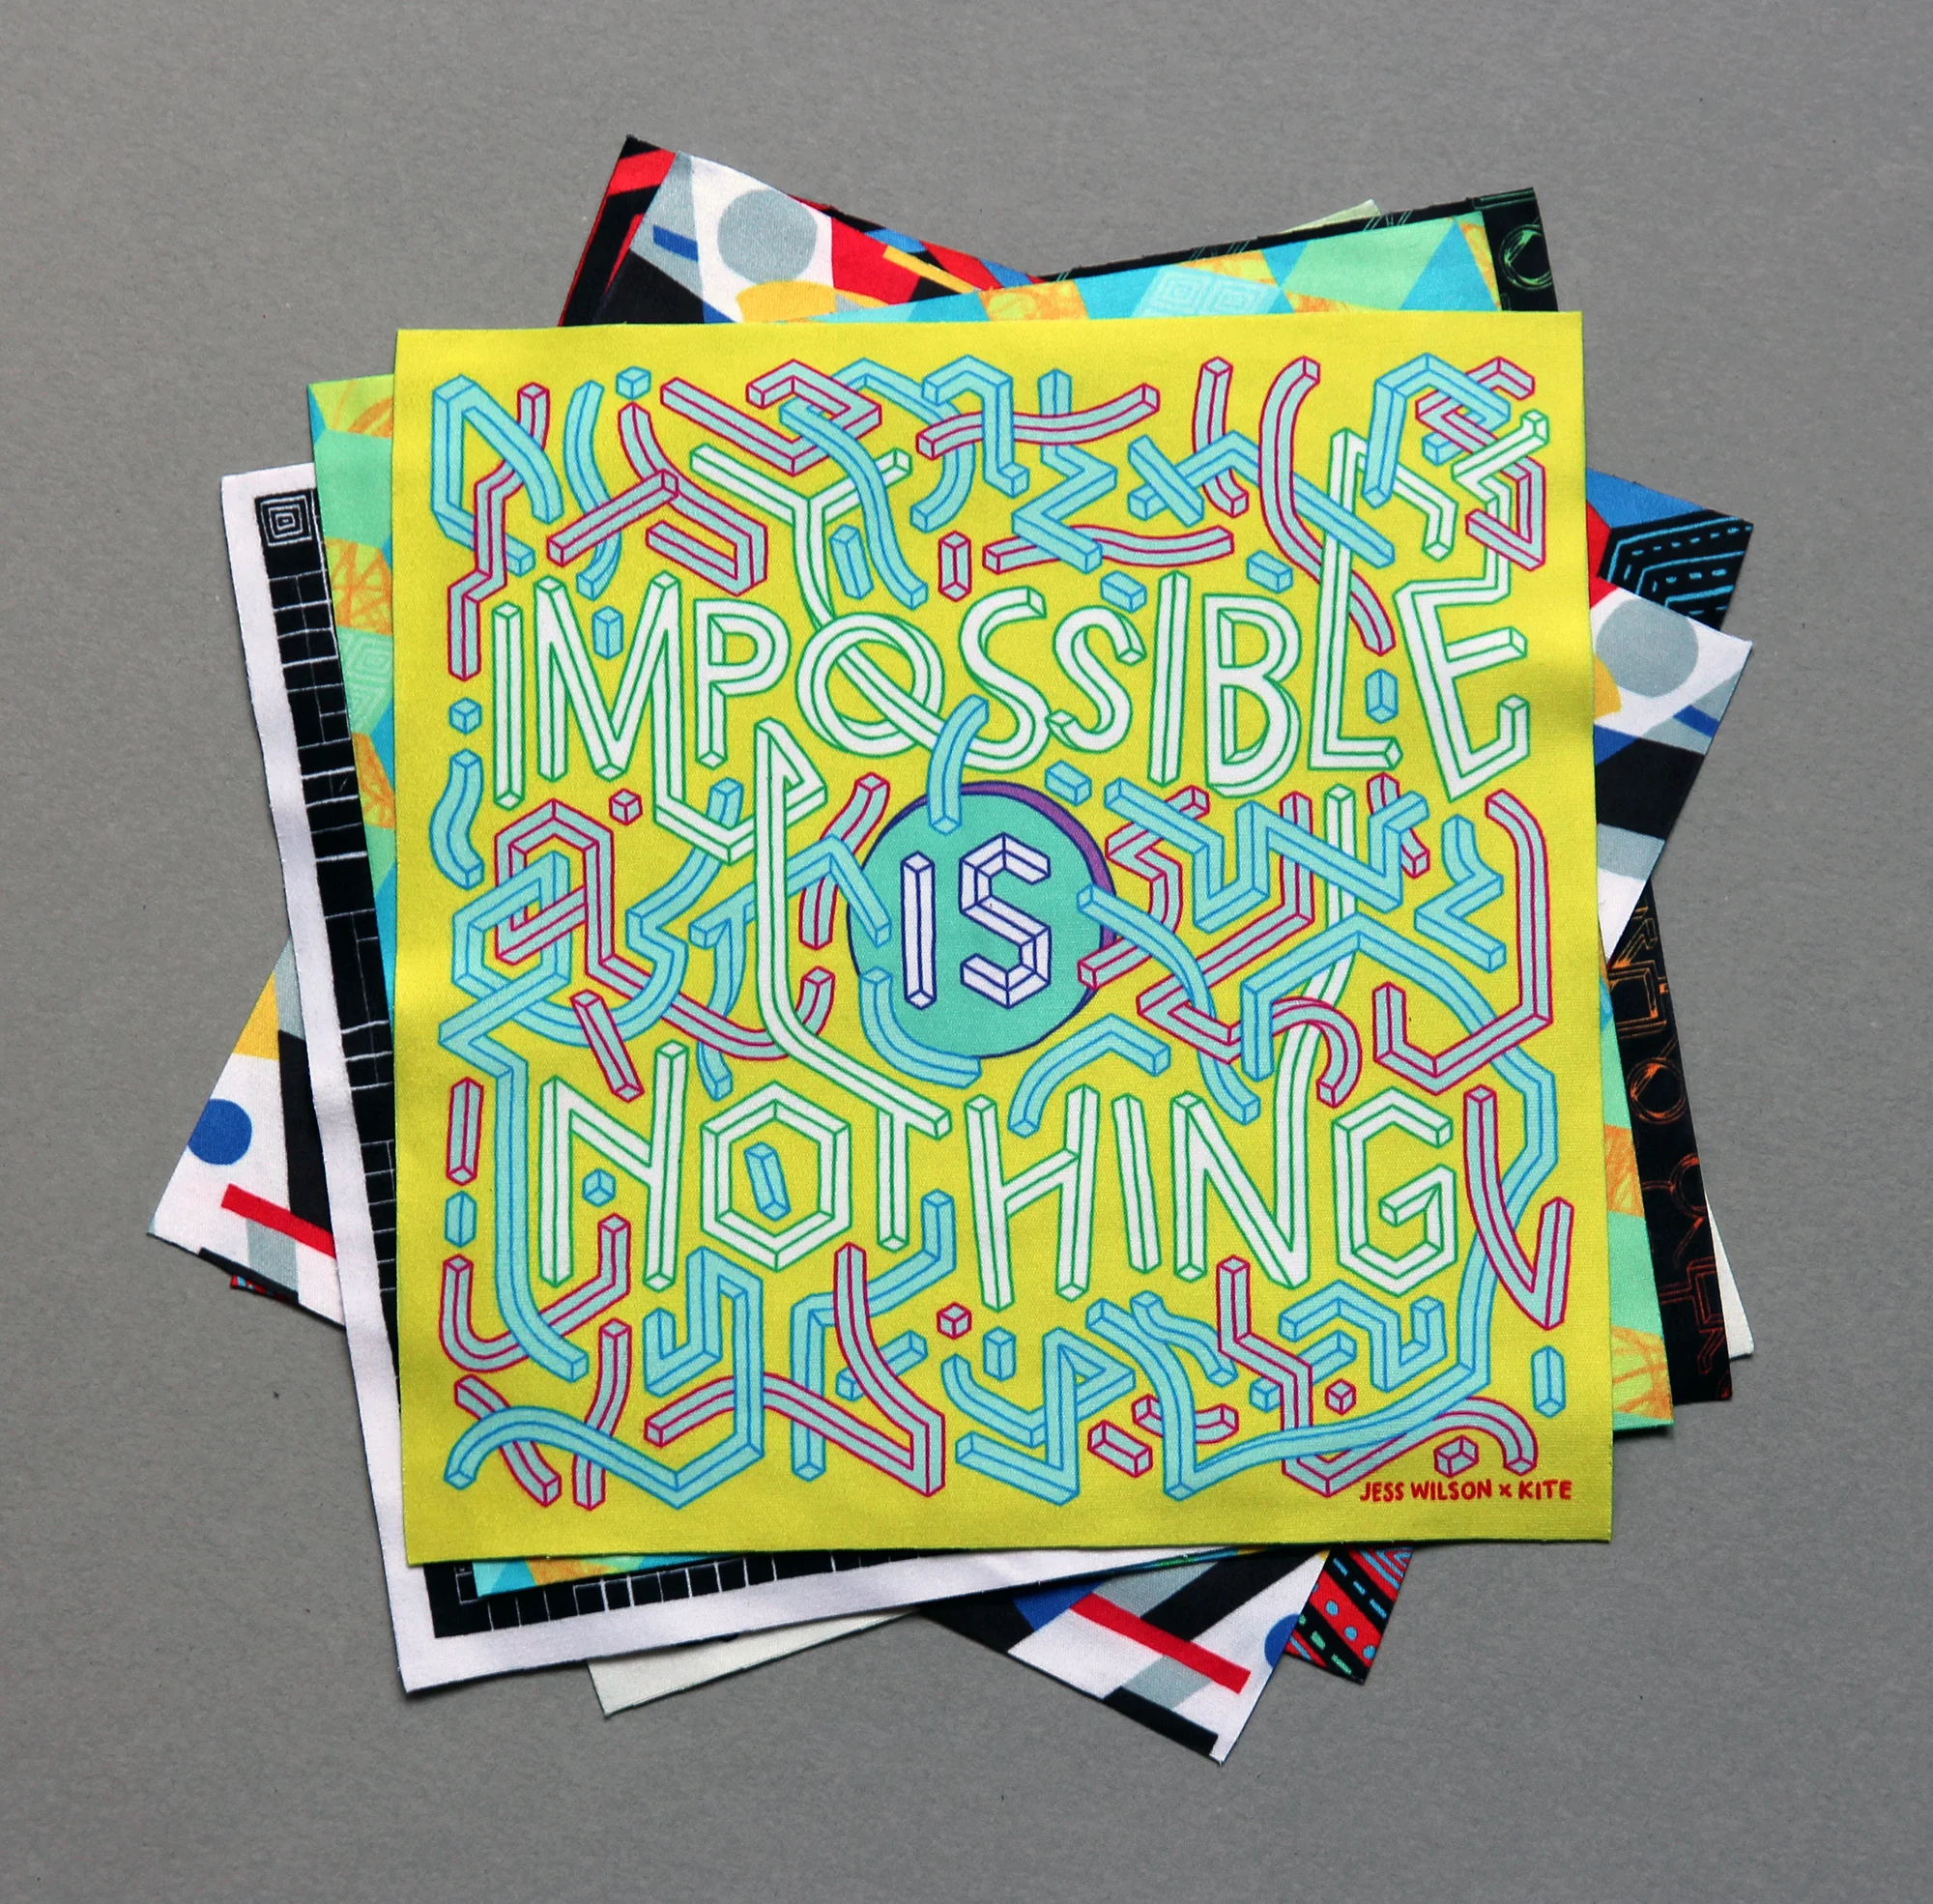 IMPOSSIBLE
IS
NOTHING
JESS WILSON x KITE